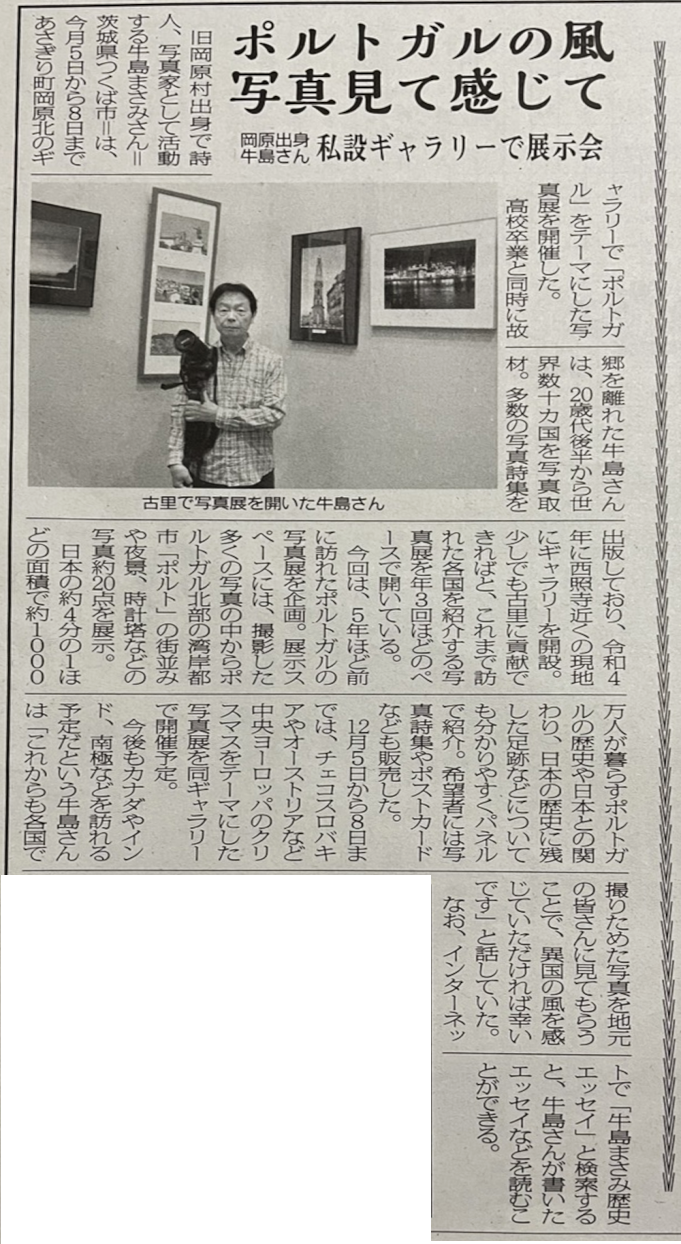 ポルトガルの風
写真見て感じて
岡原出身
牛島さん
私設ギャラリーで展示会
旧岡原村出身で詩
人、写真家として活動
する牛島まさみさん＝
茨城県つくば市＝は、
今月５日から８日まで
あさぎり町岡原北のギ
ャラリーで「ポルトガ
ル」をテーマにした写
真展を開催した。
高校卒業と同時に故
郷を離れた牛島さん
は、20歳代後半から世
界数十カ国を写真取
材。多数の写真詩集を
古里で写真展を開いた牛島さん
出版しており、令和４
年に西照寺近くの現地
にギャラリーを開設。
少しでも古里に貢献で
きればと、これまで訪
れた各国を紹介する写
真展を年３回ほどのペ
ースで開いている。
今回は、５年ほど前
に訪れたポルトガルの
写真展を企画。展示ス
ペースには、撮影した
多くの写真の中からポ
ルトガル北部の湾岸都
市「ポルト」の街並み
や夜景、時計塔などの
写真約20点を展示。
日本の約４分の１ほ
どの面積で約１０００
万人が暮らすポルトガ
ルの歴史や日本との関
わり、日本の歴史に残
した足跡などについて
も分かりやすくパネル
で紹介。希望者には写
真詩集やポストカード
なども販売した。
12月５日から８日ま
では、チェコスロバキ
アやオーストリアなど
中央ヨーロッパのクリ
スマスをテーマにした
写真展を同ギャラリー
で開催予定。
今後もカナダやイン
ド、南極などを訪れる
予定だという牛島さん
は「これからも各国で
撮りためた写真を地元
の皆さんに見てもらう
ことで、異国の風を感
じていただければ幸い
です」と話していた。
なお、インターネッ
トで「牛島まさみ歴史
エッセイ」と検索する
と、牛島さんが書いた
エッセイなどを読むこ
とができる。